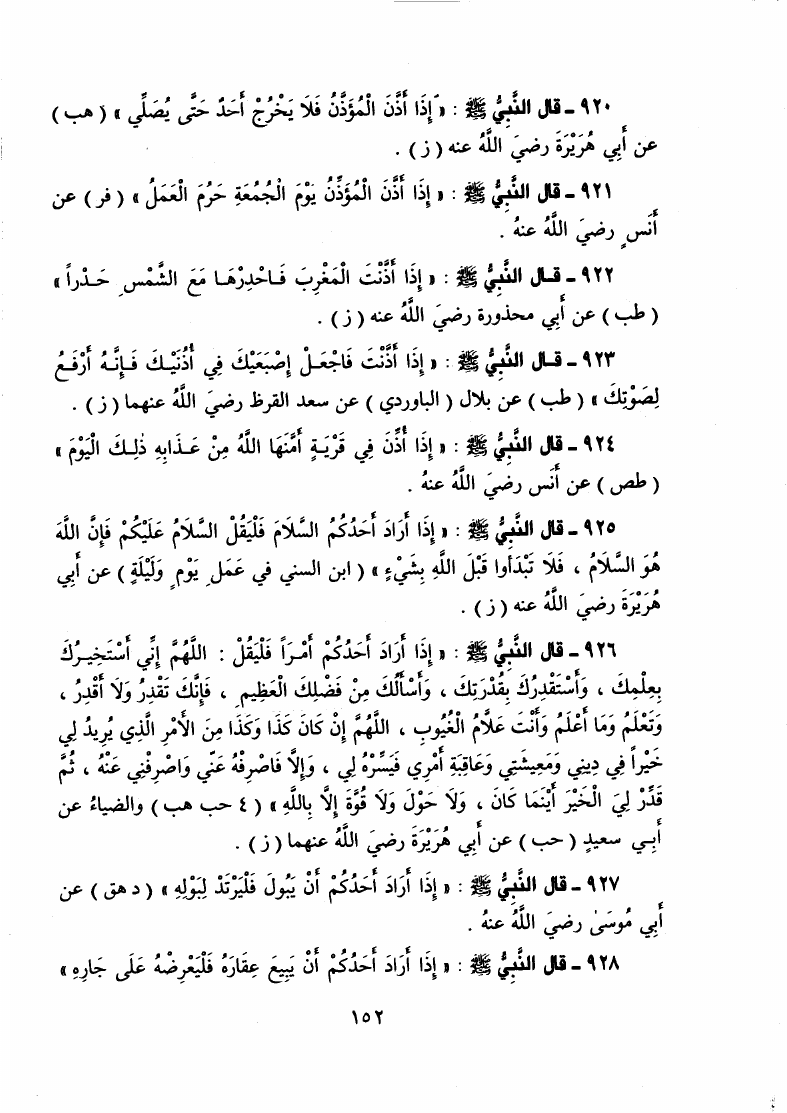 ٩٢٠ ـ قال النَّبِيُّ ﷺ : « إِذَا أَذَّنَ الْمُؤَذِّنُ فَلَا يَخْرُجْ أَحَدٌ حَتَّى يُصَلِّي » ( هب )
عن أَبِي هُرَيْرَةَ رضيَ اللَّهُ عنه ( ز ) .
٩٢١ ـ قال النَّبِيُّ ﷺ : « إِذَا أَذَّنَ الْمُؤَذِّنُ يَوْمَ الْجُمُعَةِ حَرُمَ الْعَمَلُ » ( فر ) عن
أَنَسٍ رضيَ اللَّهُ عنهُ .
٩٢٢ ـ قـال النَّبِيُّ ﷺ : « إِذَا أَذَّنْتَ الْمَغْرِبَ فَـاحْدِرْهَـا مَعَ الشَّمْسِ حَـدْراً »
( طب ) عن أَبي محذورة رضيَ اللَّهُ عنه ( ز ) .
٩٢٣ ـ قال النَّبِيُّ ﷺ : « إِذَا أَذَّنْتَ فَاجْعَـلْ إِصْبَعَيْكَ فِي أُذُنَيْـكَ فَـإِنَّـهُ أَرْفَـعُ
لِصَوْتِكَ » ( طب ) عن بلال ( الباوردي ) عن سعد القرظ رضيَ اللَّهُ عنهما ( ز ) .
٩٢٤ ـ قال النَّبِيُّ ﷺ : « إِذَا أُذِّنَ فِي قَرْيَـةٍ أَمَّنَهَا اللَّهُ مِنْ عَـذَابِهِ ذٰلِـكَ الْيَوْمَ »
( طص ) عن أَنس رضيَ اللَّهُ عنهُ .
٩٢٥ ـ قال النَّبِيُّ ﷺ : « إِذَا أَرَادَ أَحَدُكُمُ السَّلَامَ فَلْيَقُلْ السَّلَامُ عَلَيْكُمْ فَإِنَّ اللَّهَ
هُوَ السَّلَامُ ، فَلَا تَبْدَأوا قَبْلَ اللَّهِ بِشَيْءٍ » ( ابن السني في عَمَلِ يَوْمٍ وَلَيْلَةٍ ) عن أَبي
هُرَيْرَةَ رضيَ اللَّهُ عنه ( ز ) .
٩٢٦ ـ قال النَّبِيُّ ﷺ : « إِذَا أَرَادَ أَحَدُكُمْ أَمْـراً فَلْيَقُلْ : اللَّهُمَّ إِنِّي أَسْتَخِيـرُكَ
بِعِلْمِكَ ، وَأَسْتَقْدِرُكَ بِقُدْرَتِكَ ، وَأَسْأَلُكَ مِنْ فَضْلِكَ الْعَظِيمِ ، فَإِنَّكَ تَقْدِرُ وَلَا أَقْدِرُ ،
وَتَعْلَمُ وَمَا أَعْلَمُ وَأَنْتَ عَلَّامُ الْغُيُوبِ ، اللَّهُمَّ إِنْ كَانَ كَذَا وَكَذَا مِنَ الأَمْرِ الَّذِي يُرِيدُ لِي
خَيْراً فِي دِينِي وَمَعِيشَتِي وَعَاقِبَةِ أَمْرِي فَيَسِّرْهُ لِي ، وَإِلَّا فَاصْرِفْهُ عَنِّي وَاصْرِفْنِي عَنْهُ ، ثُمَّ
قَدِّرْ لِيَ الْخَيْرَ أَيْنَمَا كَانَ ، وَلَا حَوْلَ وَلَا قُوَّةَ إِلَّا بِاللَّهِ » ( ٤ حب هب ) والضياءُ عن
أَبـي سعيدٍ ( حب ) عن أَبِي هُرَيْرَةَ رضيَ اللَّهُ عنهما ( ز ) .
٩٢٧ ـ قال النَّبِيُّ ﷺ : « إِذَا أَرَادَ أَحَدُكُمْ أَنْ يَبُولَ فَلْيَرْتَدْ لِبَوْلِهِ » ( د هق ) عن
أَبِي مُوسَىٰ رضيَ اللَّهُ عنهُ .
٩٢٨ ـ قال النَّبِيُّ ﷺ : « إِذَا أَرَادَ أَحَدُكُمْ أَنْ يَبِيعَ عِقَارَهُ فَلْيَعْرِضْهُ عَلَى جَارِهِ »
١٥٢